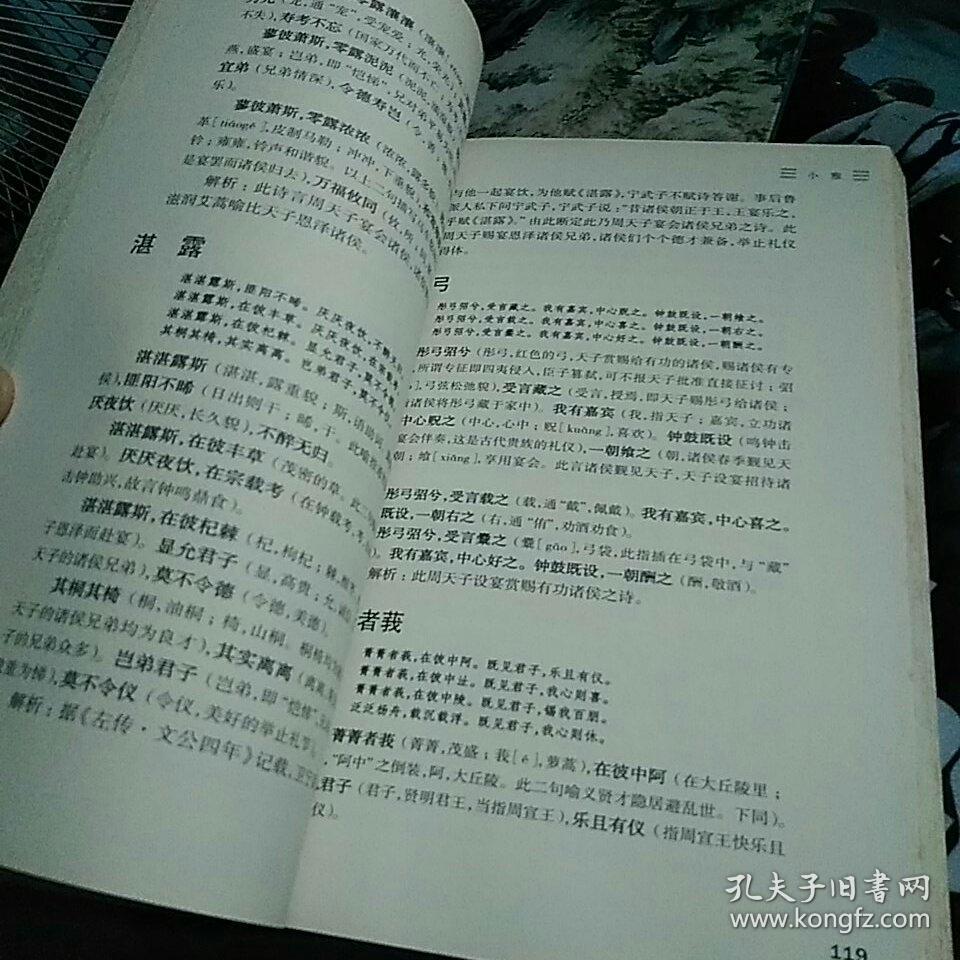 蓼彼萧斯，零露泥泥（泥泥，
燕，盛宴；岂弟，即“恺悌”，
宜弟（兄弟情深），令德寿岂（
乐）。
蓼彼萧斯，零露浓浓（浓浓，露多貌
革[tiáogé]，皮制马勒；冲冲，下垂貌），
铃；雍雍，铃声和谐貌。以上二句描写
是宴罢而诸侯归去），万福攸同（攸，所；同，
解析：此诗言周天子宴会诸侯，
滋润艾蒿喻比天子恩泽诸侯。
湛 露
湛湛露斯，匪阳不晞。厌厌夜饮，不醉无归。
湛湛露斯，在彼丰草。厌厌夜饮，在宗载考。
湛湛露斯，在彼杞棘。显允君子，莫不令德。
其桐其椅，其实离离。岂弟君子，莫不令仪。
湛湛露斯（湛湛，露重貌；斯，语助词，
侯），匪阳不晞（日出则干；晞，干。此喻
厌夜饮（厌厌，长久貌），不醉无归。
湛湛露斯，在彼丰草（茂密的草。此二
赴宴）。厌厌夜饮，在宗载考（在钟载考，
击钟助兴，故言钟鸣鼎食）。
湛湛露斯，在彼杞棘（杞，枸杞；棘，
子恩泽而赴宴）。显允君子（显，高贵；允，诚
天子的诸侯兄弟），莫不令德（令德，美德）。
其桐其椅（桐，油桐；椅，山桐。桐椅
天子的诸侯兄弟均为良才），其实离离（离离，
子的兄弟众多）。岂弟君子（岂弟，即“恺悌”，
重为悌），莫不令仪（令仪，美好的举止礼节）。
解析：据《左传·文公四年》记载，
小雅
与他一起宴饮，为他赋《湛露》，宁武子不赋诗答谢。事后鲁
派人私下问宁武子，宁武子说：“昔诸侯朝正于王，王宴乐之，
乎赋《湛露》。”由此断定此乃周天子宴会诸侯兄弟之诗。此
周天子赐宴恩泽诸侯兄弟，诸侯们个个德才兼备，举止礼仪
得体。
弓
彤弓弨兮，受言藏之。我有嘉宾，中心贶之。钟鼓既设，一朝飨之。
彤弓弨兮，受言载之。我有嘉宾，中心喜之。钟鼓既设，一朝右之。
彤弓弨兮，受言櫜之。我有嘉宾，中心好之。钟鼓既设，一朝酬之。
彤弓弨兮（彤弓，红色的弓，天子赏赐给有功的诸侯，赐诸侯有专
，所谓专征即四夷侵入，臣子篡弑，可不报天子批准直接征讨；弨
]，弓弦松弛貌），受言藏之（受言，授焉，即天子赐彤弓给诸侯；
言诸侯将彤弓藏于家中）。我有嘉宾（我，指天子；嘉宾，立功诸
中心贶之（中心，心中；贶[kuàng]，喜欢）。钟鼓既设（鸣钟击
宴会伴奏，这是古代贵族的礼仪），一朝飨之（朝，诸侯春季觐见天
朝；飨[xiǎng]，享用宴会。此言诸侯觐见天子，天子设宴招待诸
彤弓弨兮，受言载之（载，通“戴”，佩戴）。我有嘉宾，中心喜之。
既设，一朝右之（右，通“侑”，劝酒劝食）。
彤弓弨兮，受言櫜之（櫜[gāo]，弓袋，此指插在弓袋中，与“藏”
）。我有嘉宾，中心好之。钟鼓既设，一朝酬之（酬，敬酒）。
解析：此周天子设宴赏赐有功诸侯之诗。
者莪
菁菁者莪，在彼中阿。既见君子，乐且有仪。
菁菁者莪，在彼中沚。既见君子，我心则喜。
菁菁者莪，在彼中陵。既见君子，锡我百朋。
泛泛杨舟，载沉载浮。既见君子，我心则休。
菁菁者莪（菁菁，茂盛；莪[é]，萝蒿），在彼中阿（在大丘陵里；
，“阿中”之倒装，阿，大丘陵。此二句喻义贤才隐居避乱世。下同）。
君子（君子，贤明君王，当指周宣王），乐且有仪（指周宣王快乐且
仪）。
119
孔夫子旧书网
www.kongfz.com